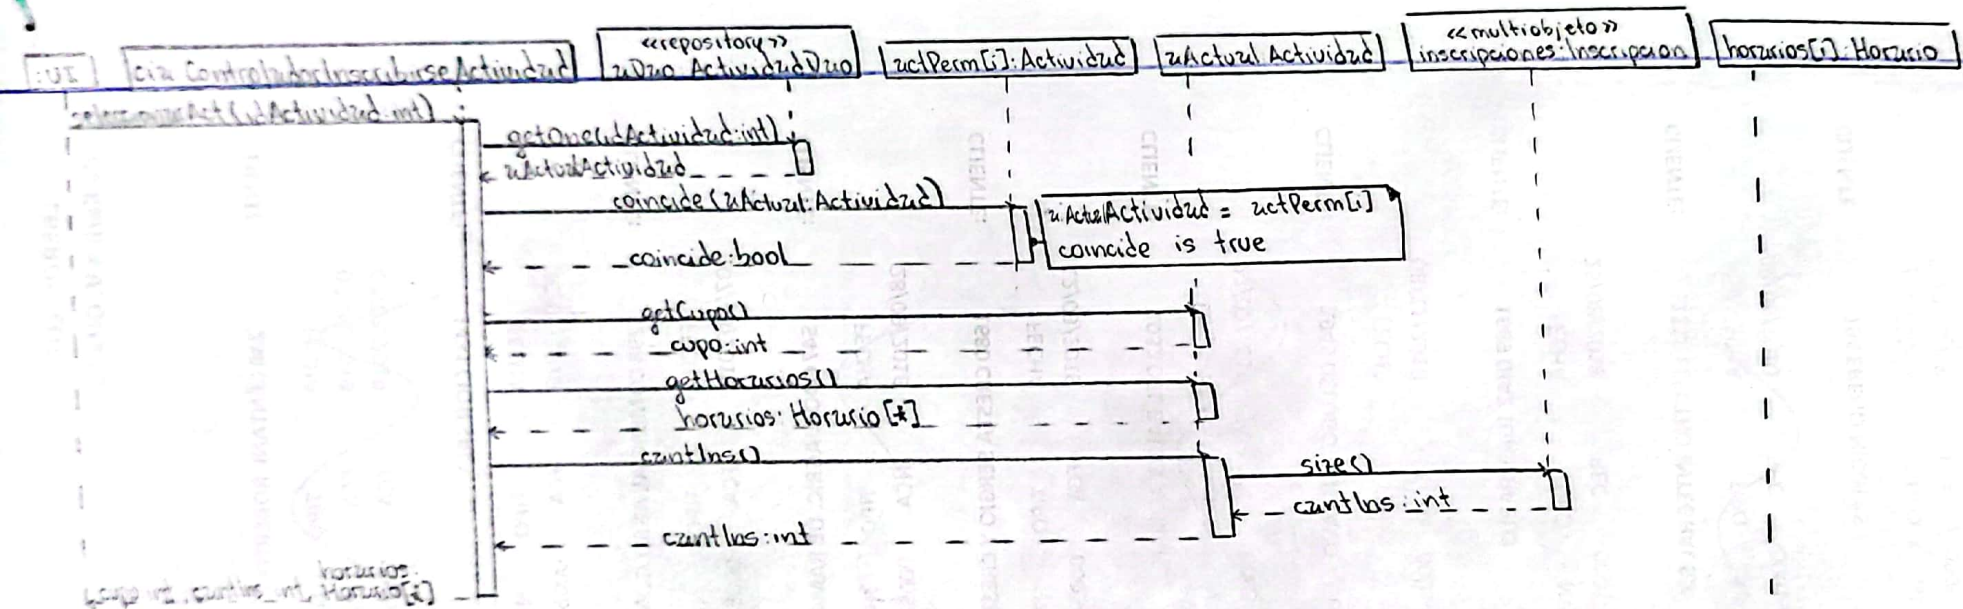 :UI
cia ControladorInscribirseActividad
<<repository>>
aDao ActividadDao
actPerm[i]:Actividad
aActual Actividad
<<multiobjeto>>
inscripciones:Inscripcion
horarios[i]:Horario
seleccionarAct(idActividad:int)
getOne(idActividad:int)
aActualActividad
coincide(aActual:Actividad)
aActualActividad = actPerm[i]
coincide is true
coincide:bool
getCupo()
cupo:int
getHorarios()
horarios: Horario[*]
cantIns()
size()
cantIns:int
cantIns:int
horarios:
cantIns int, Horario[*]